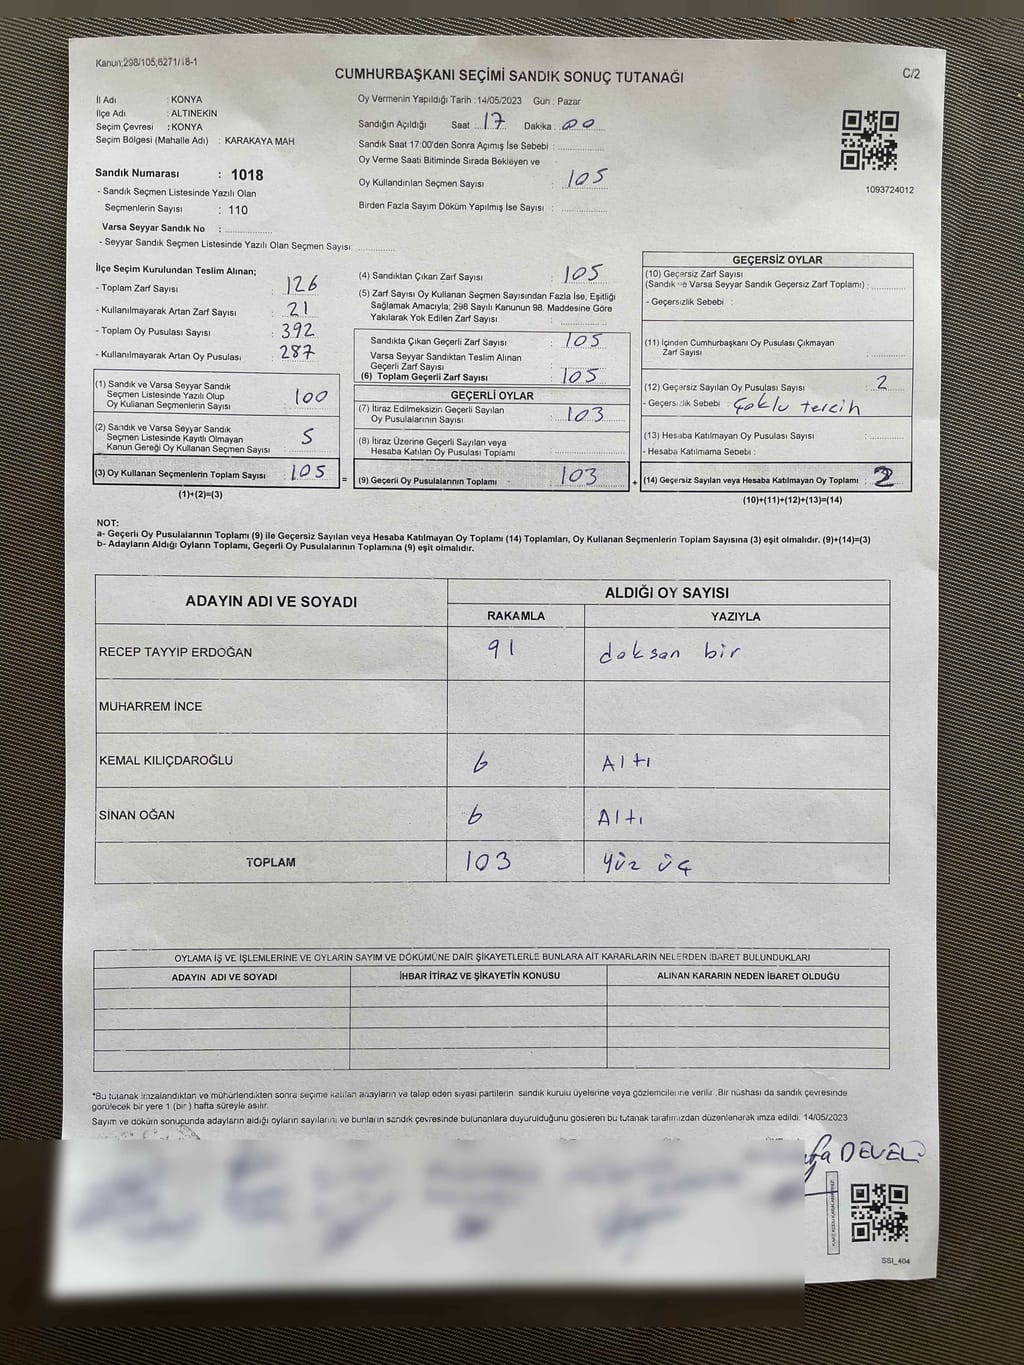 Kanun;298/105;6271/18-1
CUMHURBAŞKANI SEÇİMİ SANDIK SONUÇ TUTANAĞI
C/2
İl Adı : KONYA
İlçe Adı : ALTINEKİN
Seçim Çevresi : KONYA
Seçim Bölgesi (Mahalle Adı) : KARAKAYA MAH.
Sandık Numarası : 1018
- Sandık Seçmen Listesinde Yazılı Olan
Seçmenlerin Sayısı : 110
Varsa Seyyar Sandık No :
- Seyyar Sandık Seçmen Listesinde Yazılı Olan Seçmen Sayısı
Oy Vermenin Yapıldığı Tarih : 14/05/2023 Gün : Pazar
Sandığın Açıldığı Saat 17 Dakika 00
Sandık Saat 17:00'den Sonra Açımış İse Sebebi :
Oy Verme Saati Bitiminde Sırada Bekleyen ve
Oy Kullandırılan Seçmen Sayısı : 105
Birden Fazla Sayım Döküm Yapılmış İse Sayısı :
1093724012
İlçe Seçim Kurulundan Teslim Alınan;
- Toplam Zarf Sayısı : 126
- Kullanılmayarak Artan Zarf Sayısı : 21
- Toplam Oy Pusulası Sayısı : 392
- Kullanılmayarak Artan Oy Pusulası : 287
(1) Sandık ve Varsa Seyyar Sandık
Seçmen Listesinde Yazılı Olup
Oy Kullanan Seçmenlerin Sayısı : 100
(2) Sandık ve Varsa Seyyar Sandık
Seçmen Listesinde Kayıtlı Olmayan
Kanun Gereği Oy Kullanan Seçmen Sayısı : 5
(3) Oy Kullanan Seçmenlerin Toplam Sayısı : 105
(1)+(2)=(3)
(4) Sandıktan Çıkan Zarf Sayısı : 105
(5) Zarf Sayısı Oy Kullanan Seçmen Sayısından Fazla İse, Eşitliği
Sağlamak Amacıyla; 298 Sayılı Kanunun 98. Maddesine Göre
Yakılarak Yok Edilen Zarf Sayısı
Sandıkta Çıkan Geçerli Zarf Sayısı : 105
Varsa Seyyar Sandıktan Teslim Alınan
Geçerli Zarf Sayısı
(6) Toplam Geçerli Zarf Sayısı : 105
GEÇERLİ OYLAR
(7) İtiraz Edilmeksizin Geçerli Sayılan
Oy Pusulalarının Sayısı : 103
(8) İtiraz Üzerine Geçerli Sayılan veya
Hesaba Katılan Oy Pusulası Toplamı
= (9) Geçerli Oy Pusulalarının Toplamı : 103
GEÇERSİZ OYLAR
(10) Geçersiz Zarf Sayısı
(Sandık ve Varsa Seyyar Sandık Geçersiz Zarf Toplamı) :
- Geçersizlik Sebebi :
(11) İçinden Cumhurbaşkanı Oy Pusulası Çıkmayan
Zarf Sayısı :
(12) Geçersiz Sayılan Oy Pusulası Sayısı : 2
- Geçersizlik Sebebi : Çoklu tercih
(13) Hesaba Katılmayan Oy Pusulası Sayısı :
- Hesaba Katılmama Sebebi :
+ (14) Geçersiz Sayılan veya Hesaba Katılmayan Oy Toplamı : 2
(10)+(11)+(12)+(13)=(14)
NOT:
a- Geçerli Oy Pusulalarının Toplamı (9) ile Geçersiz Sayılan veya Hesaba Katılmayan Oy Toplamı (14) Toplamları, Oy Kullanan Seçmenlerin Toplam Sayısına (3) eşit olmalıdır. (9)+(14)=(3)
b- Adayların Aldığı Oyların Toplamı, Geçerli Oy Pusulalarının Toplamına (9) eşit olmalıdır.
ADAYIN ADI VE SOYADI
ALDIĞI OY SAYISI
RAKAMLA YAZIYLA
RECEP TAYYİP ERDOĞAN 91 doksan bir
MUHARREM İNCE
KEMAL KILIÇDAROĞLU 6 Altı
SİNAN OĞAN 6 Altı
TOPLAM 103 yüz üç
OYLAMA İŞ VE İŞLEMLERİNE VE OYLARIN SAYIM VE DÖKÜMÜNE DAİR ŞİKAYETLERLE BUNLARA AİT KARARLARIN NELERDEN İBARET BULUNDUKLARI
ADAYIN ADI VE SOYADI İHBAR İTİRAZ VE ŞİKAYETİN KONUSU ALINAN KARARIN NEDEN İBARET OLDUĞU
*Bu tutanak imzalandıktan ve mühürlendikten sonra seçime katılan adayların ve talep eden siyasi partilerin sandık kurulu üyelerine veya gözlemcilerine verilir. Bir nüshası da sandık çevresinde
görülecek bir yere 1 (bir) hafta süreyle asılır.
Sayım ve döküm sonucunda adayların aldığı oyların sayılarını ve bunların sandık çevresinde bulunanlara duyurulduğunu gösteren bu tutanak tarafımızdan düzenlenerek imza edildi. 14/05/2023
DEVELİ
SSI_404